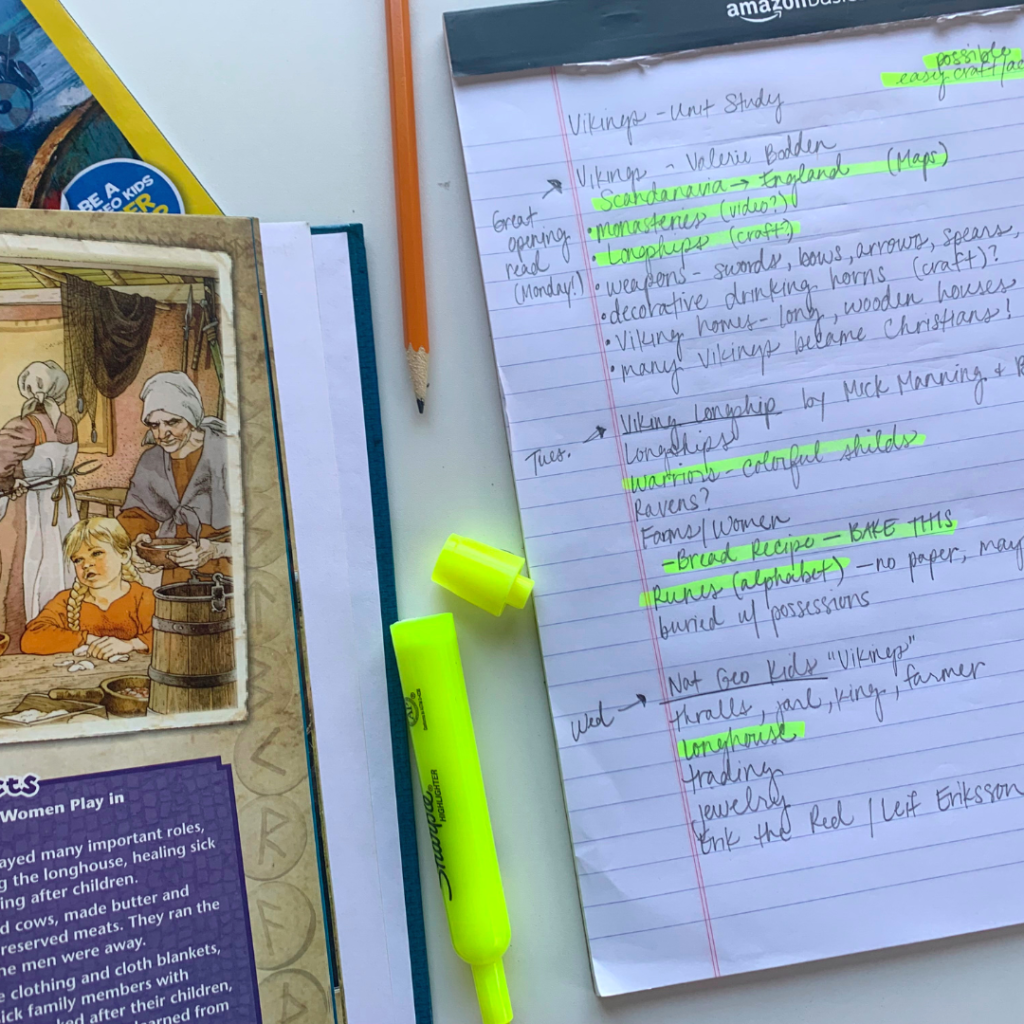 BE A
GEO KIDS
amazonbasics
possible
easy craft/ac
Vikings - Unit Study
Vikings - Valerie Bodden
Scandanavia → England (Maps)
Great
opening
read
(Monday!)
• monasteries (video?)
• Longships (craft?)
• weapons - swords, bows, arrows, spears,
• decorative drinking horns (craft)?
• Viking homes - long, wooden houses
• many Vikings became Christians!
Tues. → Viking Longship by Mick Manning + B
Longships
Warriors - colorful shilds
Ravens?
Farms/Women
- Bread Recipe - BAKE THIS
Runes (alphabet) - no paper, may
buried w/ possessions
Wed → Nat Geo Kids "Vikings"
thralls, jarl, king, farmer
longhouse
trading
jewelry
Erik the Red / Leif Eriksson
Sharpie
HIGHLIGHTER
cts
Women Play in
ayed many important roles,
g the longhouse, healing sick
ing after children.
d cows, made butter and
reserved meats. They ran the
he men were away.
e clothing and cloth blankets,
ick family members with
ked after their children,
learned from